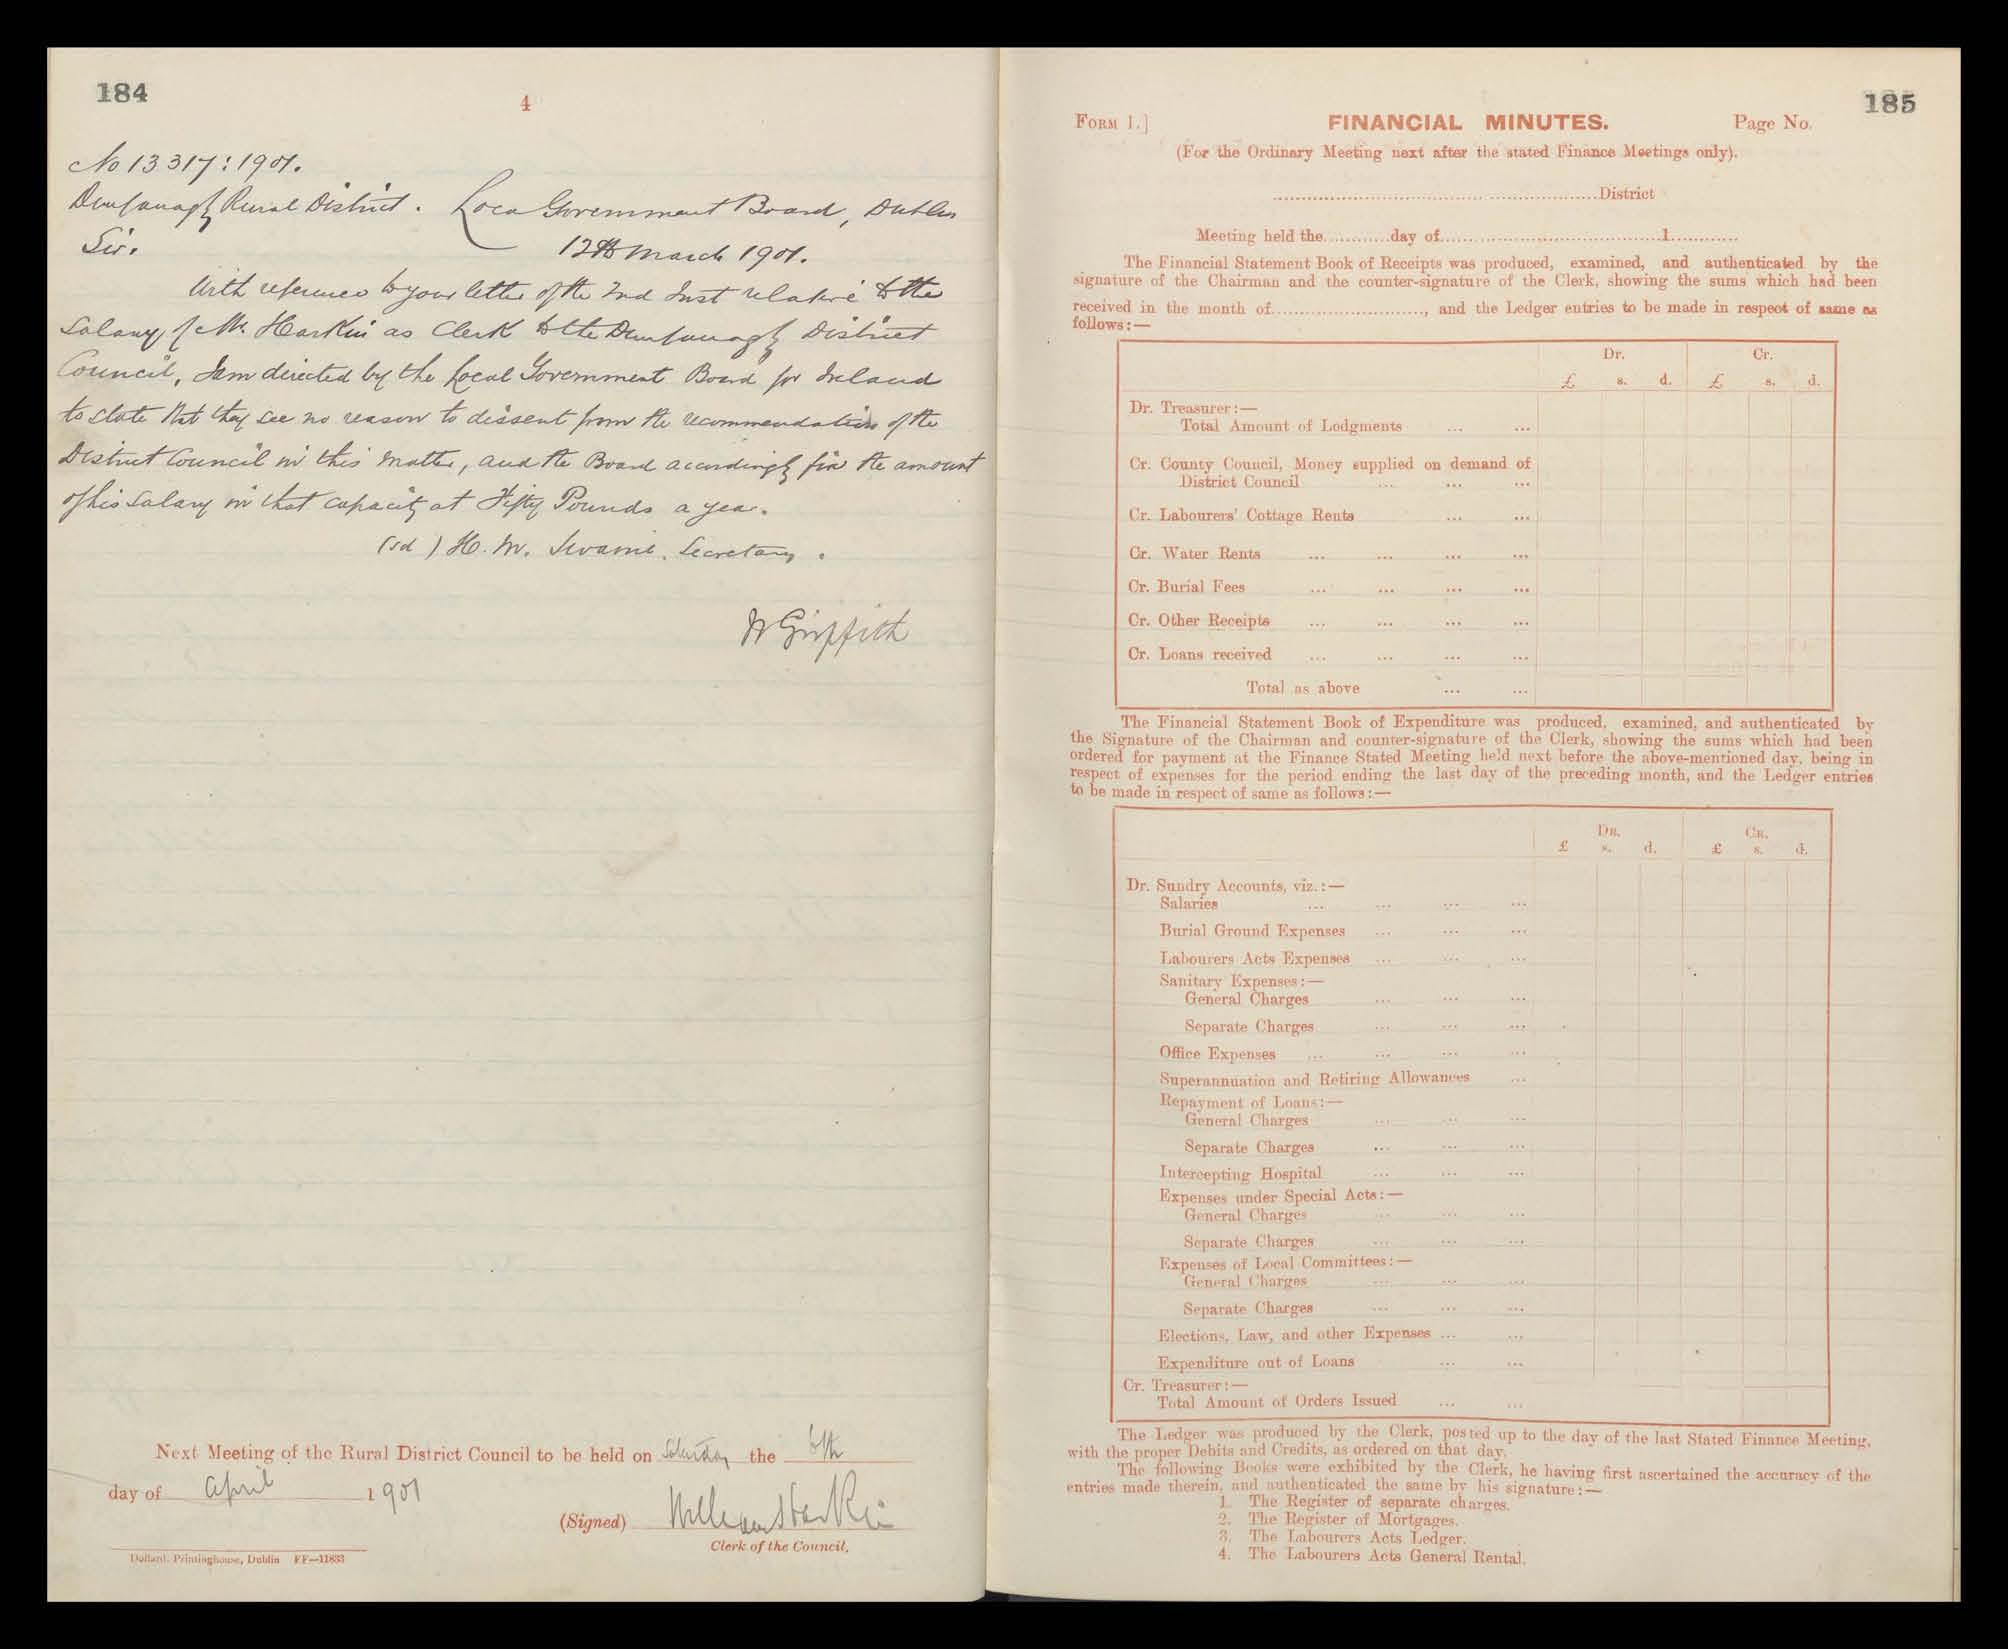 184
4
No 13317:1901.
Dunfanaghy Rural District. Local Government Board, Dublin
Sir.
12th March 1901.
With reference to your letter of the 2nd Inst relative to the
Salary of Mr. Harkin as Clerk to the Dunfanaghy District
Council, I am directed by the Local Government Board for Ireland
to state that they see no reason to dissent from the recommendation of the
District Council in this matter, and the Board accordingly fix the amount
of his Salary in that capacity at Fifty Pounds a year.
(sd) H. M. Swaine. Secretary.
W Griffith
Next Meeting of the Rural District Council to be held on Saturday the 6th
day of April 1901
(Signed) William Harkin
Clerk of the Council.
Dollard, Printinghouse, Dublin FF—11833
185
FORM 1.] FINANCIAL MINUTES. Page No.
(For the Ordinary Meeting next after the stated Finance Meetings only).
District
Meeting held the............day of........................................1............
The Financial Statement Book of Receipts was produced, examined, and authenticated by the
signature of the Chairman and the counter-signature of the Clerk, showing the sums which had been
received in the month of..........................., and the Ledger entries to be made in respect of same as
follows:—
Dr. Cr.
£ s. d. £ s. d.
Dr. Treasurer:—
Total Amount of Lodgments ... ...
Cr. County Council, Money supplied on demand of
District Council ... ... ...
Cr. Labourers' Cottage Rents ... ...
Cr. Water Rents ... ... ... ...
Cr. Burial Fees ... ... ... ...
Cr. Other Receipts ... ... ... ...
Cr. Loans received ... ... ... ...
Total as above ... ...
The Financial Statement Book of Expenditure was produced, examined, and authenticated by
the Signature of the Chairman and counter-signature of the Clerk, showing the sums which had been
ordered for payment at the Finance Stated Meeting held next before the above-mentioned day, being in
respect of expenses for the period ending the last day of the preceding month, and the Ledger entries
to be made in respect of same as follows:—
DR. CR.
£ s. d. £ s. d.
Dr. Sundry Accounts, viz.:—
Salaries ... ... ... ...
Burial Ground Expenses ... ... ...
Labourers Acts Expenses ... ... ...
Sanitary Expenses:—
General Charges ... ... ...
Separate Charges ... ... ...
Office Expenses ... ... ... ...
Superannuation and Retiring Allowances ...
Repayment of Loans:—
General Charges ... ... ...
Separate Charges ... ... ...
Intercepting Hospital ... ... ...
Expenses under Special Acts:—
General Charges ... ... ...
Separate Charges ... ... ...
Expenses of Local Committees:—
General Charges ... ... ...
Separate Charges ... ... ...
Elections, Law, and other Expenses ... ...
Expenditure out of Loans ... ...
Cr. Treasurer:—
Total Amount of Orders Issued ... ...
The Ledger was produced by the Clerk, posted up to the day of the last Stated Finance Meeting,
with the proper Debits and Credits, as ordered on that day.
The following Books were exhibited by the Clerk, he having first ascertained the accuracy of the
entries made therein, and authenticated the same by his signature:—
1. The Register of separate charges.
2. The Register of Mortgages.
3. The Labourers Acts Ledger.
4. The Labourers Acts General Rental.